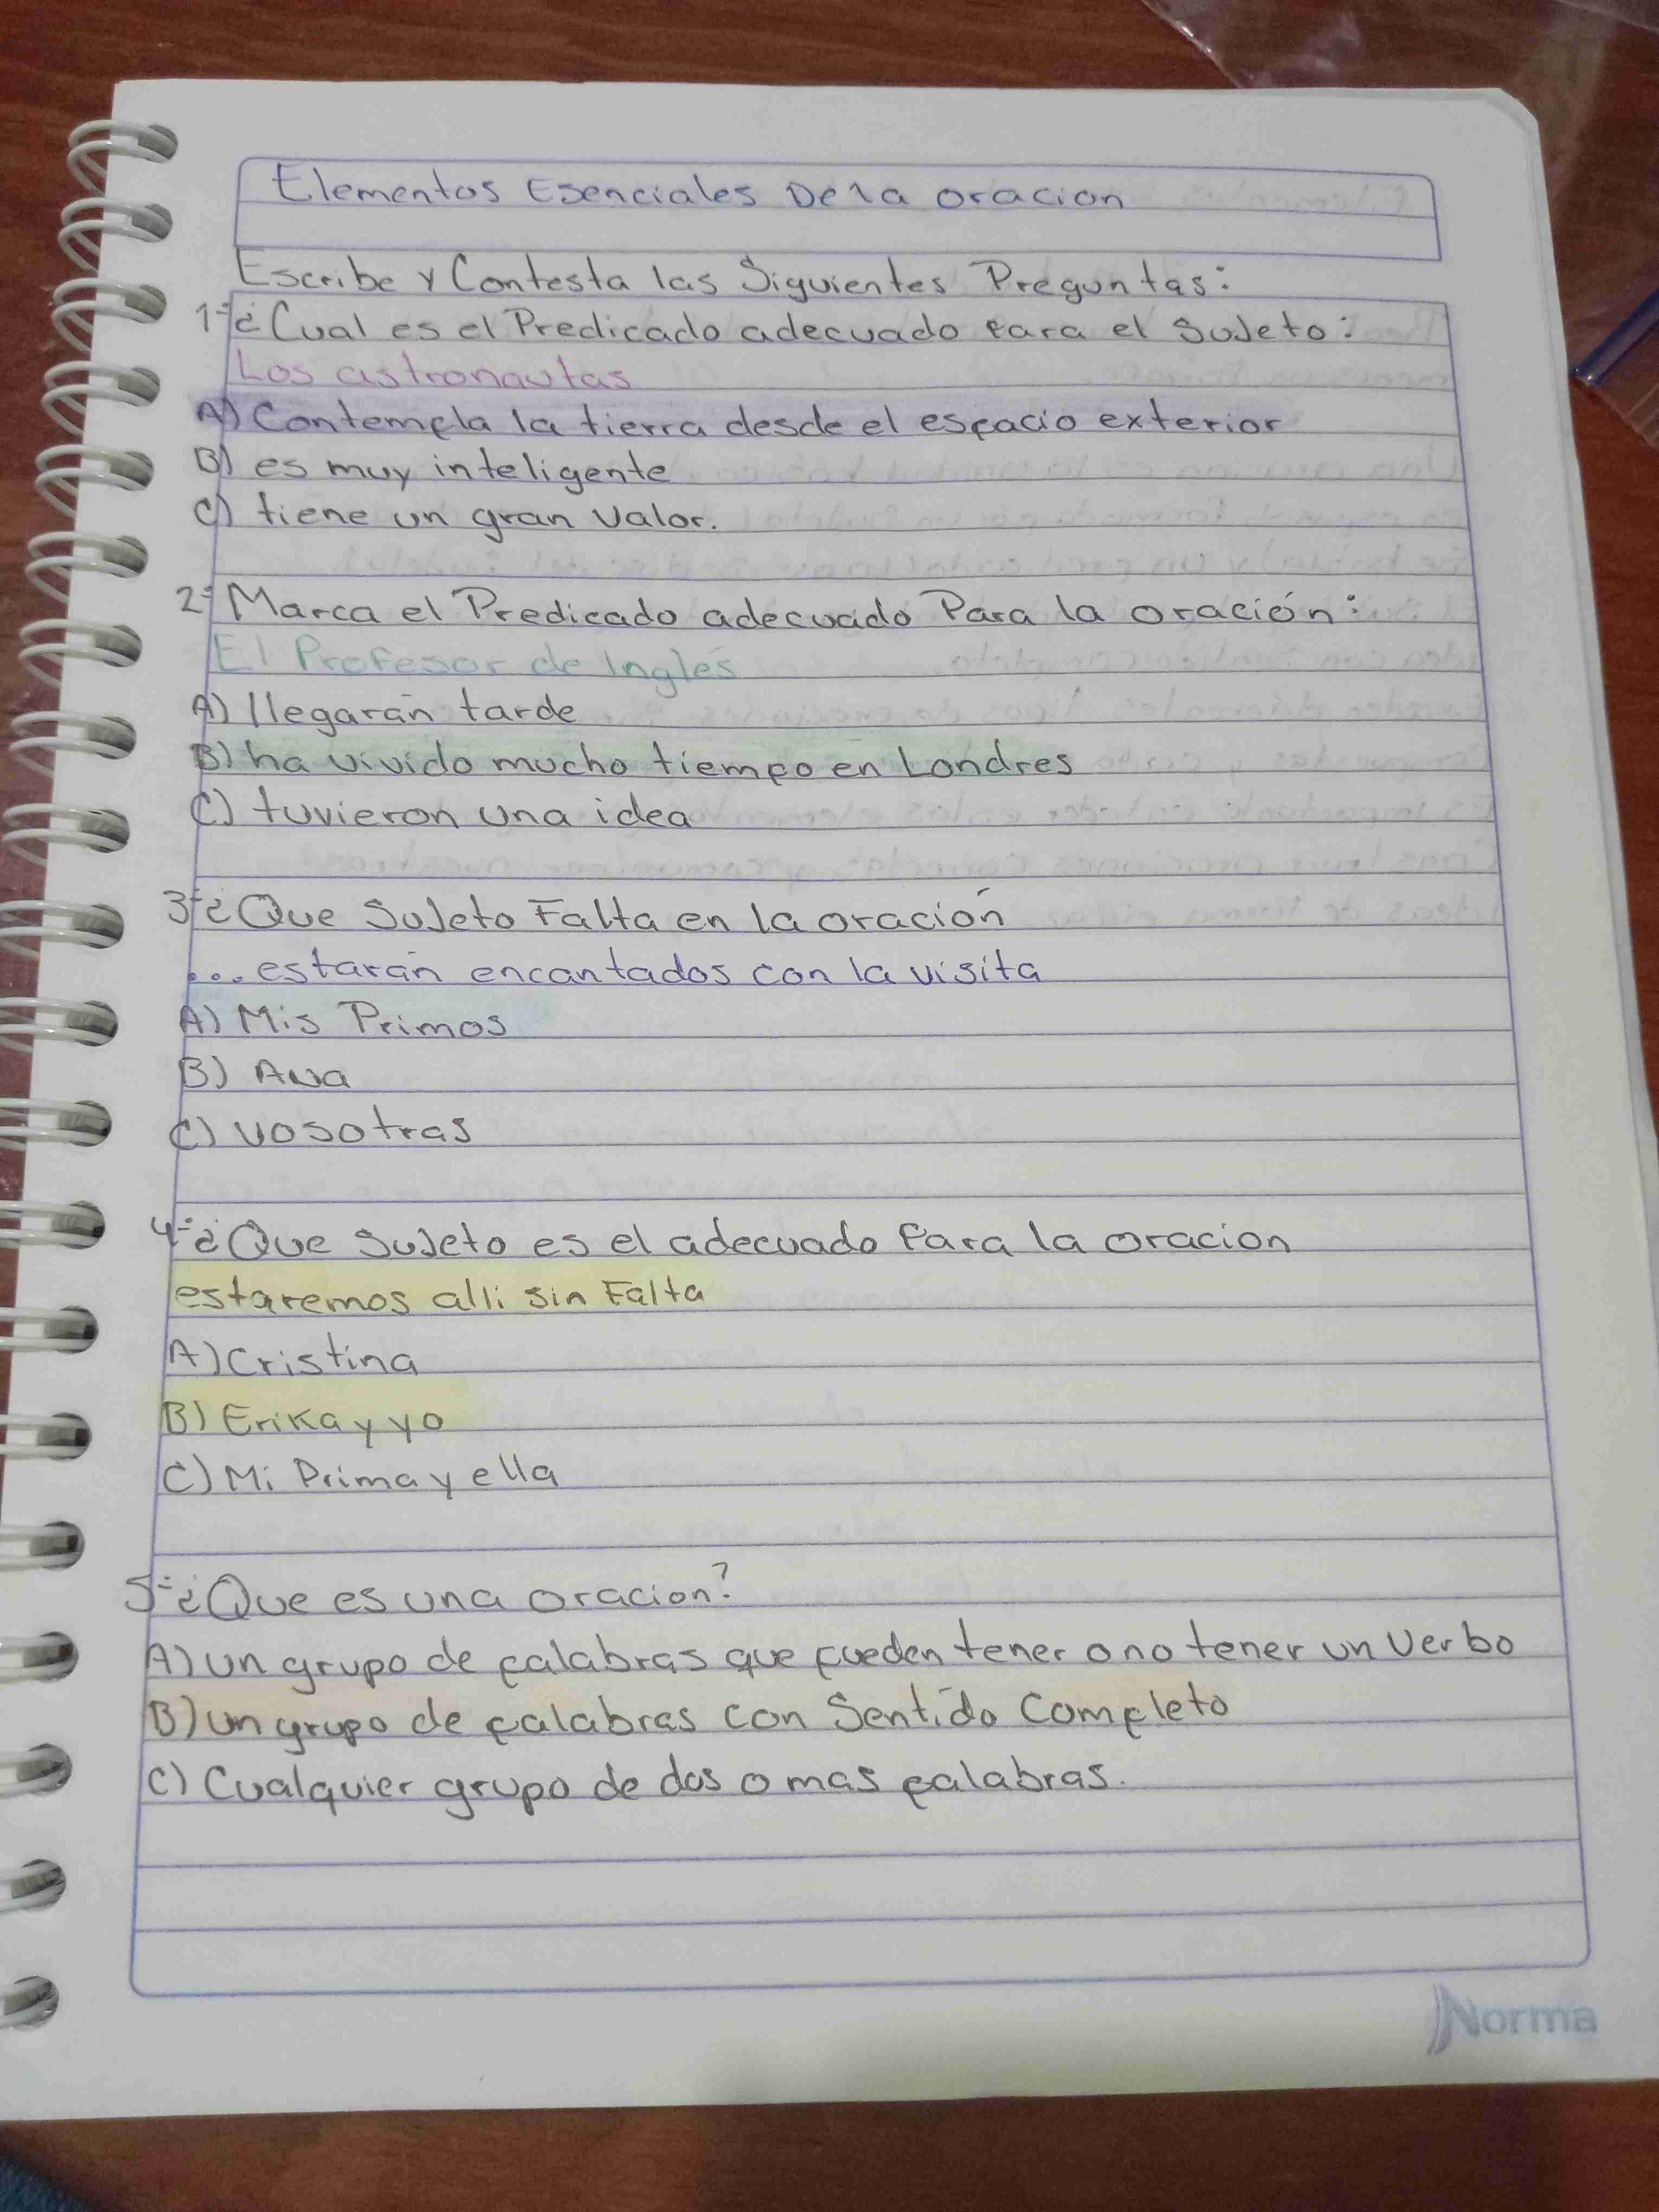 Elementos Esenciales De la oracion
Escribe y Contesta las Siguientes Preguntas:
1-¿Cual es el Predicado adecuado para el SuJeto:
Los astronautas
A) Contempla la tierra desde el espacio exterior
B) es muy inteligente
C) tiene un gran valor.
2- Marca el Predicado adecuado Para la oración:
El Profesor de Inglés
A) llegarán tarde
B) ha vivido mucho tiempo en Londres
C) tuvieron una idea
3-¿Que SuJeto Falta en la oración
...estarán encantados con la visita
A) Mis Primos
B) Ana
C) vosotras
4-¿Que SuJeto es el adecuado Para la oracion
estaremos alli sin Falta
A) Cristina
B) Erika y yo
C) Mi Prima y ella
5-¿Que es una oracion?
A) un grupo de palabras que pueden tener o no tener un Verbo
B) un grupo de palabras con Sentido Completo
C) Cualquier grupo de dos o mas palabras.
Norma